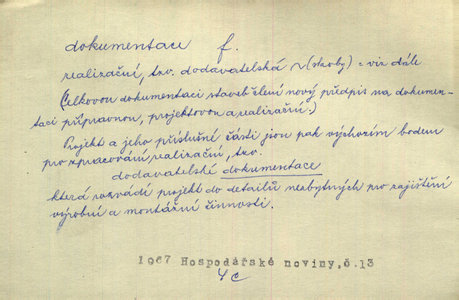 dokumentace f.
realizační, tzv. dodavatelská ~ (stavby) = viz dále
(Celkovou dokumentaci staveb člení nový předpis na dokumen-
taci přípravnou, projektovou a realizační.)
Projekt a jeho příslušné části jsou pak výchozím bodem
pro zpracování realizační, tzv.
dodavatelské dokumentace
která rozvádí projekt do detailů nezbytných pro zajištění
výrobní a montážní činnosti.
1967 Hospodářské noviny, č.13
4c